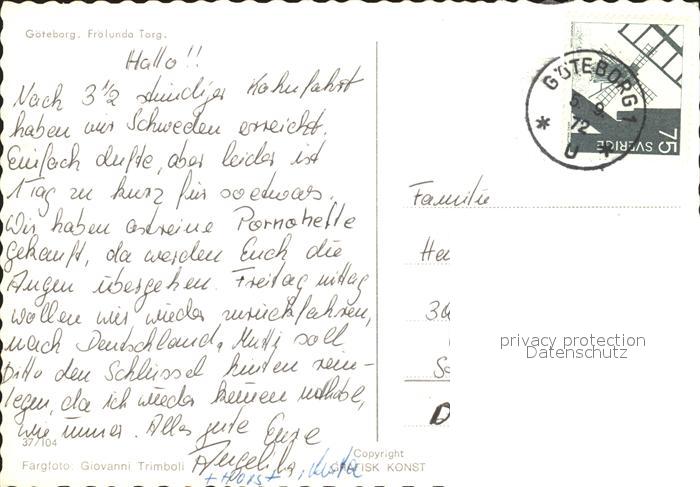 Göteborg. Frölunda Torg.
Hallo!!
Nach 3 1/2 stündiger Kahnfahrt
haben wir Schweden erreicht.
Einfach dufte, aber leider ist
1 Tag zu kurz für soetwas.
Wir haben astreine Pornohefte
gekauft, da werden Euch die
Augen übergehen. Freitag mittag
wollen wir wieder zurückfahren,
nach Deutschland. Mutti soll
bitte den Schlüssel hinten rein-
legen, da ich wieder keinen mithabe,
wie immer. Alles gute Eure
Angelika
+ Horst +
37/104
Fargfoto: Giovanni Trimboli
Copyright
GRAFISK KONST
GÖTEBORG 1
5. 9.
72
U
75 SVERIGE
Familie
He
36
privacy protection
Datenschutz
S
D